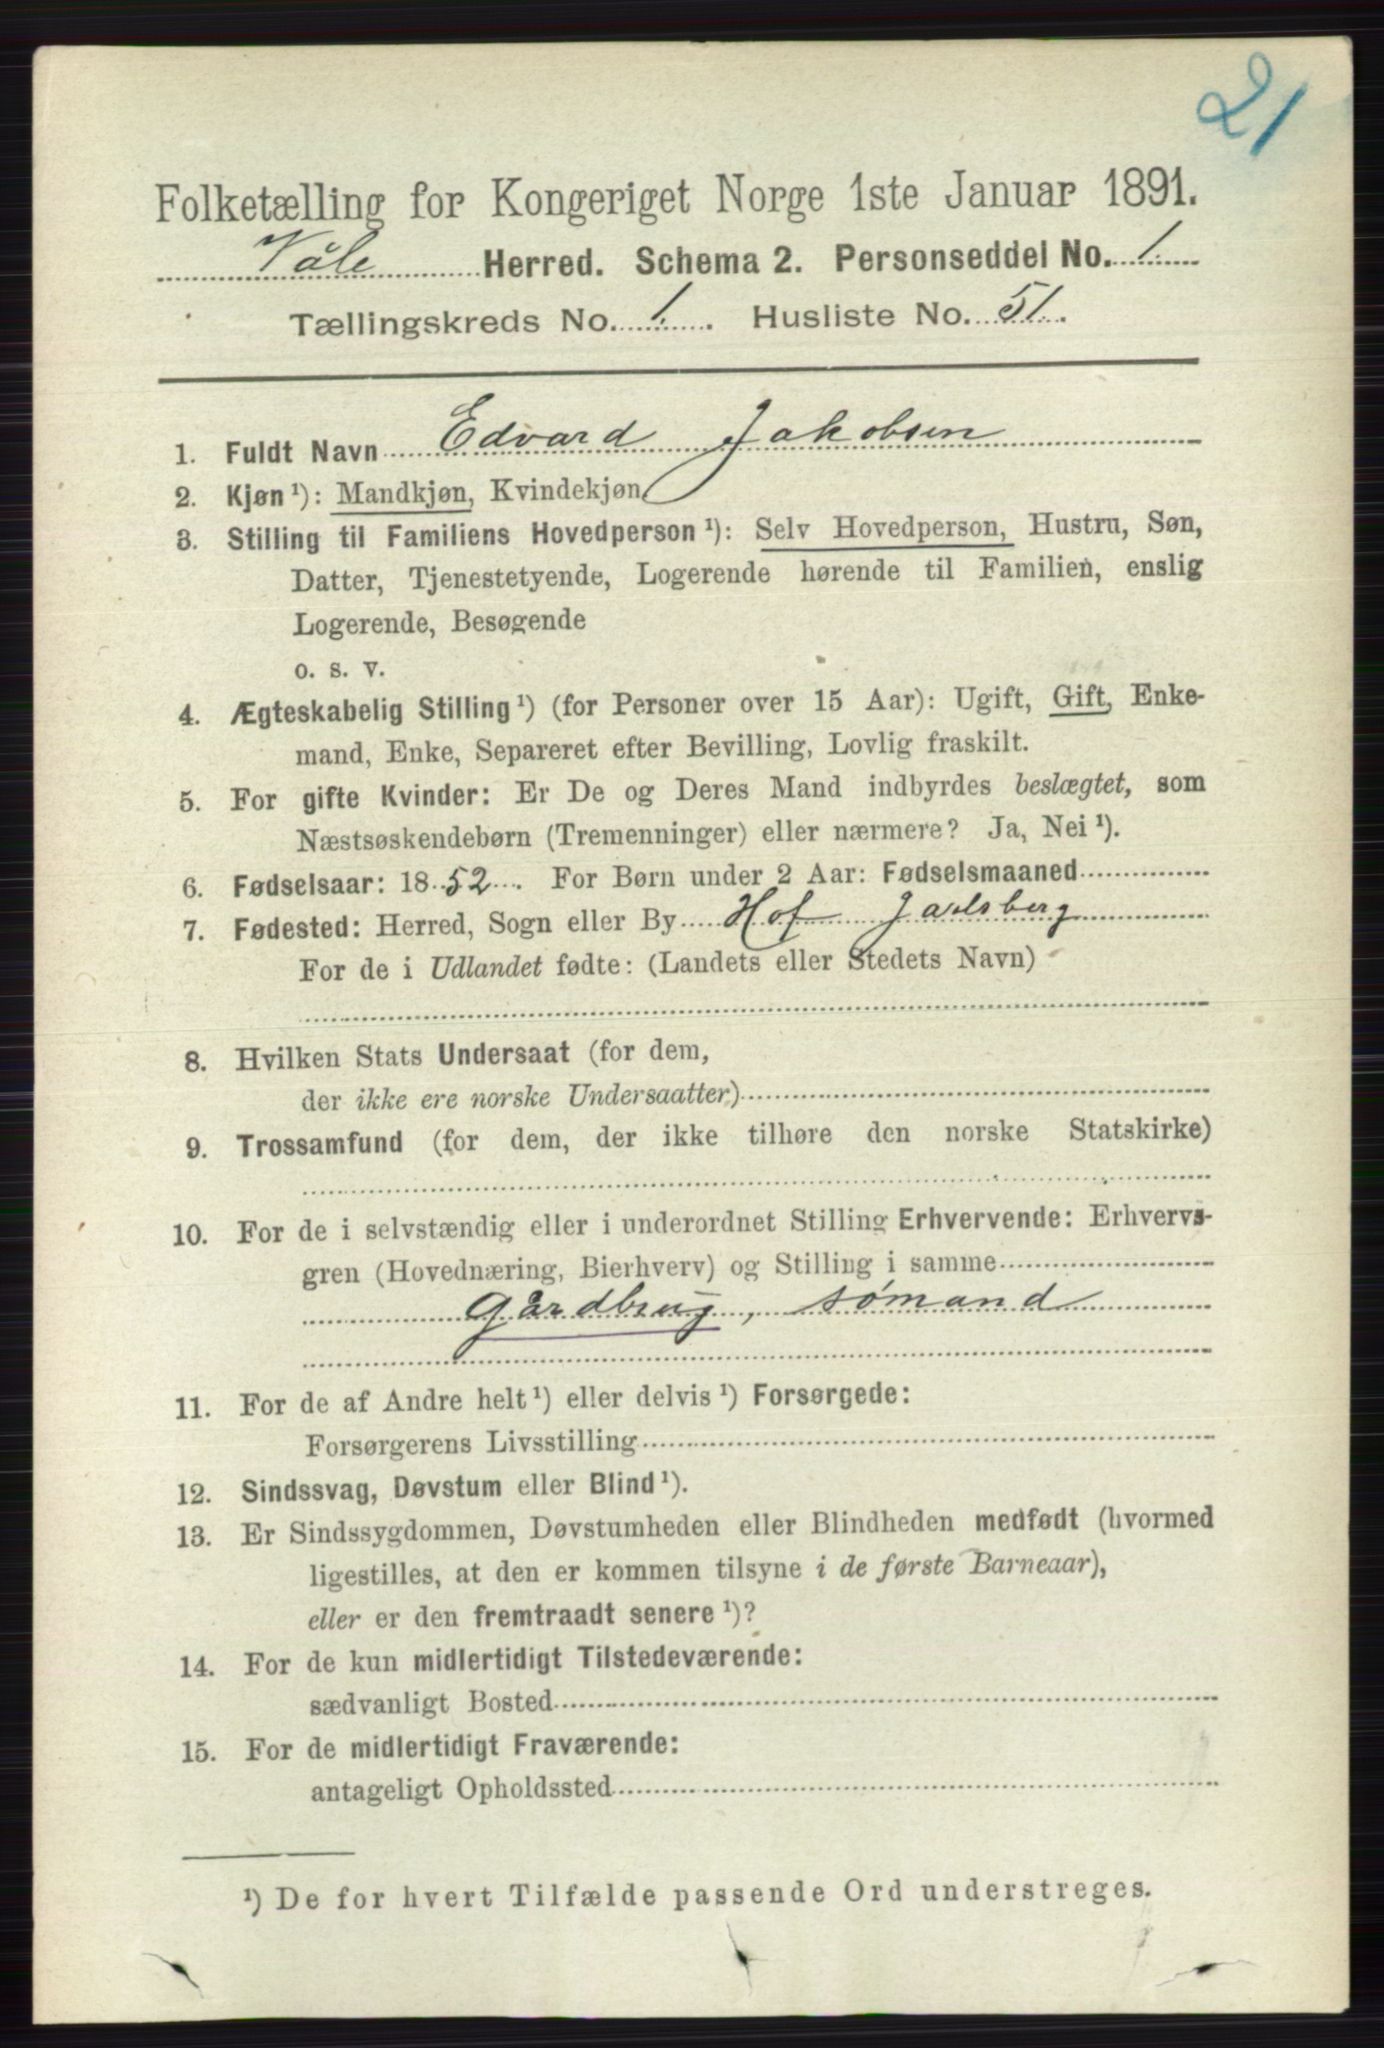 21
Folketælling for Kongeriget Norge 1ste Januar 1891.
Våle Herred. Schema 2. Personseddel No. 1
Tællingskreds No. 1. Husliste No. 51.
1. Fuldt Navn Edvard Jakobsen
2. Kjøn¹): Mandkjøn, Kvindekjøn
3. Stilling til Familiens Hovedperson¹): Selv Hovedperson, Hustru, Søn,
Datter, Tjenestetyende, Logerende hørende til Familien, enslig
Logerende, Besøgende
o. s. v.
4. Ægteskabelig Stilling¹) (for Personer over 15 Aar): Ugift, Gift, Enke-
mand, Enke, Separeret efter Bevilling, Lovlig fraskilt.
5. For gifte Kvinder: Er De og Deres Mand indbyrdes beslægtet, som
Næstsøskendebørn (Tremenninger) eller nærmere? Ja, Nei¹).
6. Fødselsaar: 1852. For Børn under 2 Aar: Fødselsmaaned
7. Fødested: Herred, Sogn eller By Hof Jarlsberg
For de i Udlandet fødte: (Landets eller Stedets Navn)
8. Hvilken Stats Undersaat (for dem,
der ikke ere norske Undersaatter)
9. Trossamfund (for dem, der ikke tilhøre den norske Statskirke)
10. For de i selvstændig eller i underordnet Stilling Erhvervende: Erhvervs-
gren (Hovednæring, Bierhverv) og Stilling i samme
Gårdbrug, sømand
11. For de af Andre helt¹) eller delvis¹) Forsørgede:
Forsørgerens Livsstilling
12. Sindssvag, Døvstum eller Blind¹).
13. Er Sindssygdommen, Døvstumheden eller Blindheden medfødt (hvormed
ligestilles, at den er kommen tilsyne i de første Barneaar),
eller er den fremtraadt senere¹)?
14. For de kun midlertidigt Tilstedeværende:
sædvanligt Bosted
15. For de midlertidigt Fraværende:
antageligt Opholdssted
¹) De for hvert Tilfælde passende Ord understreges.